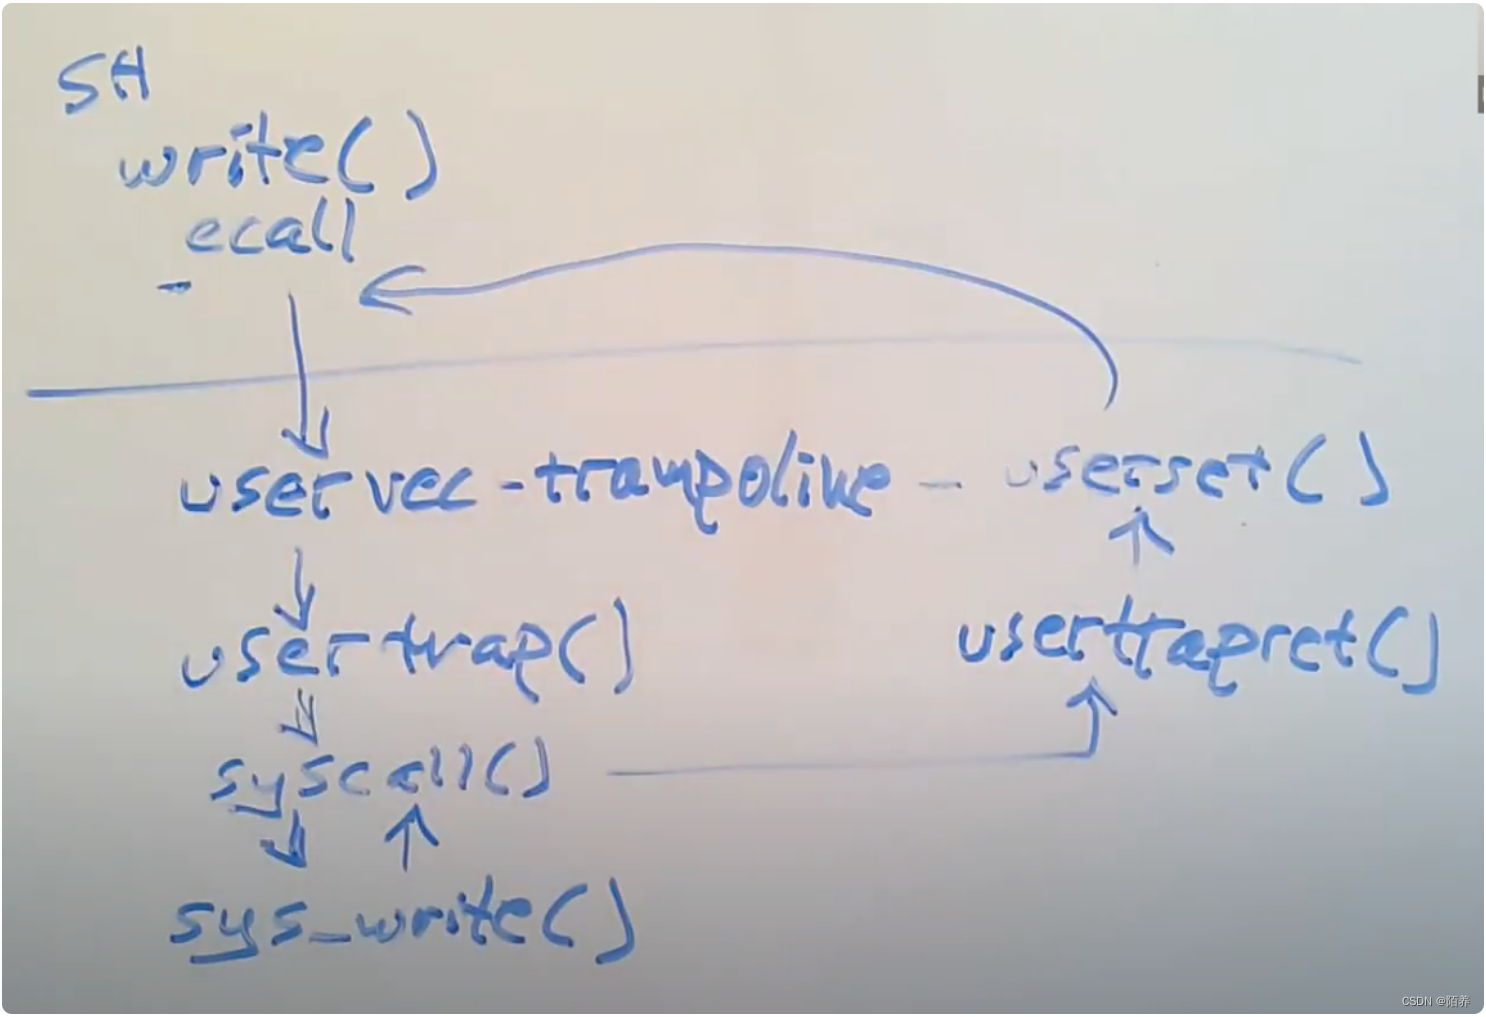 SH
write()
ecall
uservec - trampoline - userset()
usertrap()
usertrapret()
syscall()
sys_write()
CSDN @陌养